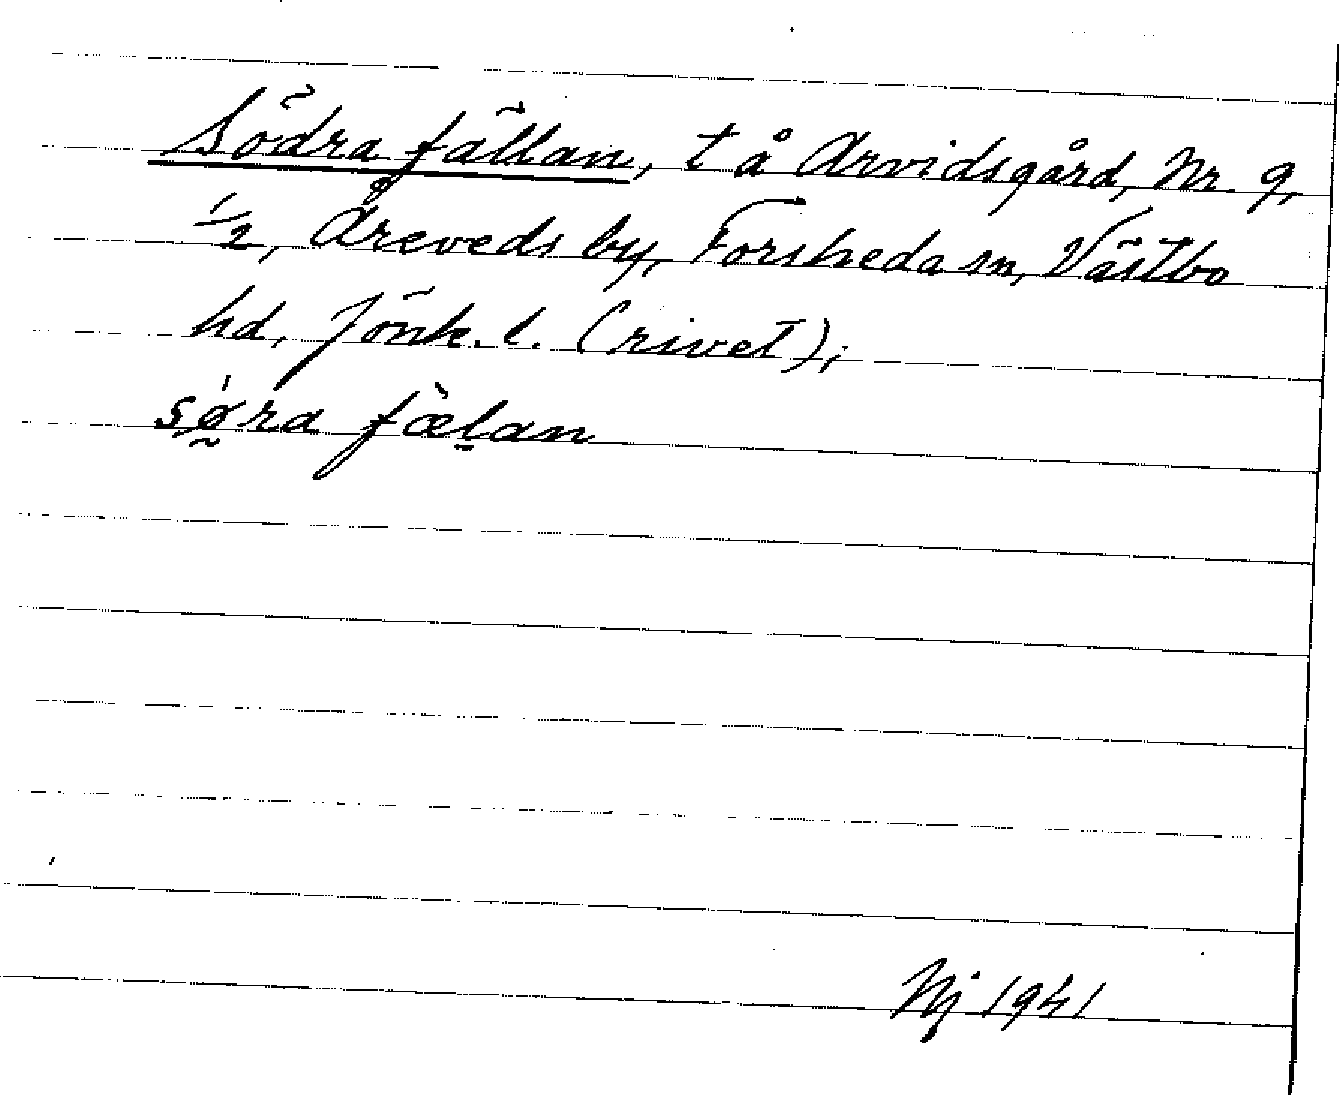 Södra fällan, t å Arvidsgård, Nr. 9,
1/2, Åreveds by, Forsheda sn, Västbo
hd, Jönk. l. (rivet);
sǿ̰ra fæ̀l̠an
Nj 1941